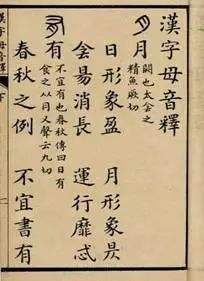 漢字母音釋
月 闕也太侌之
精魚厥切
日形象盈 月形象昃
侌昜消長 運行靡忒
有 不宜有也春秋傳曰日有
食之从月又聲云九切
春秋之例 不宜書有
漢字母音釋 下